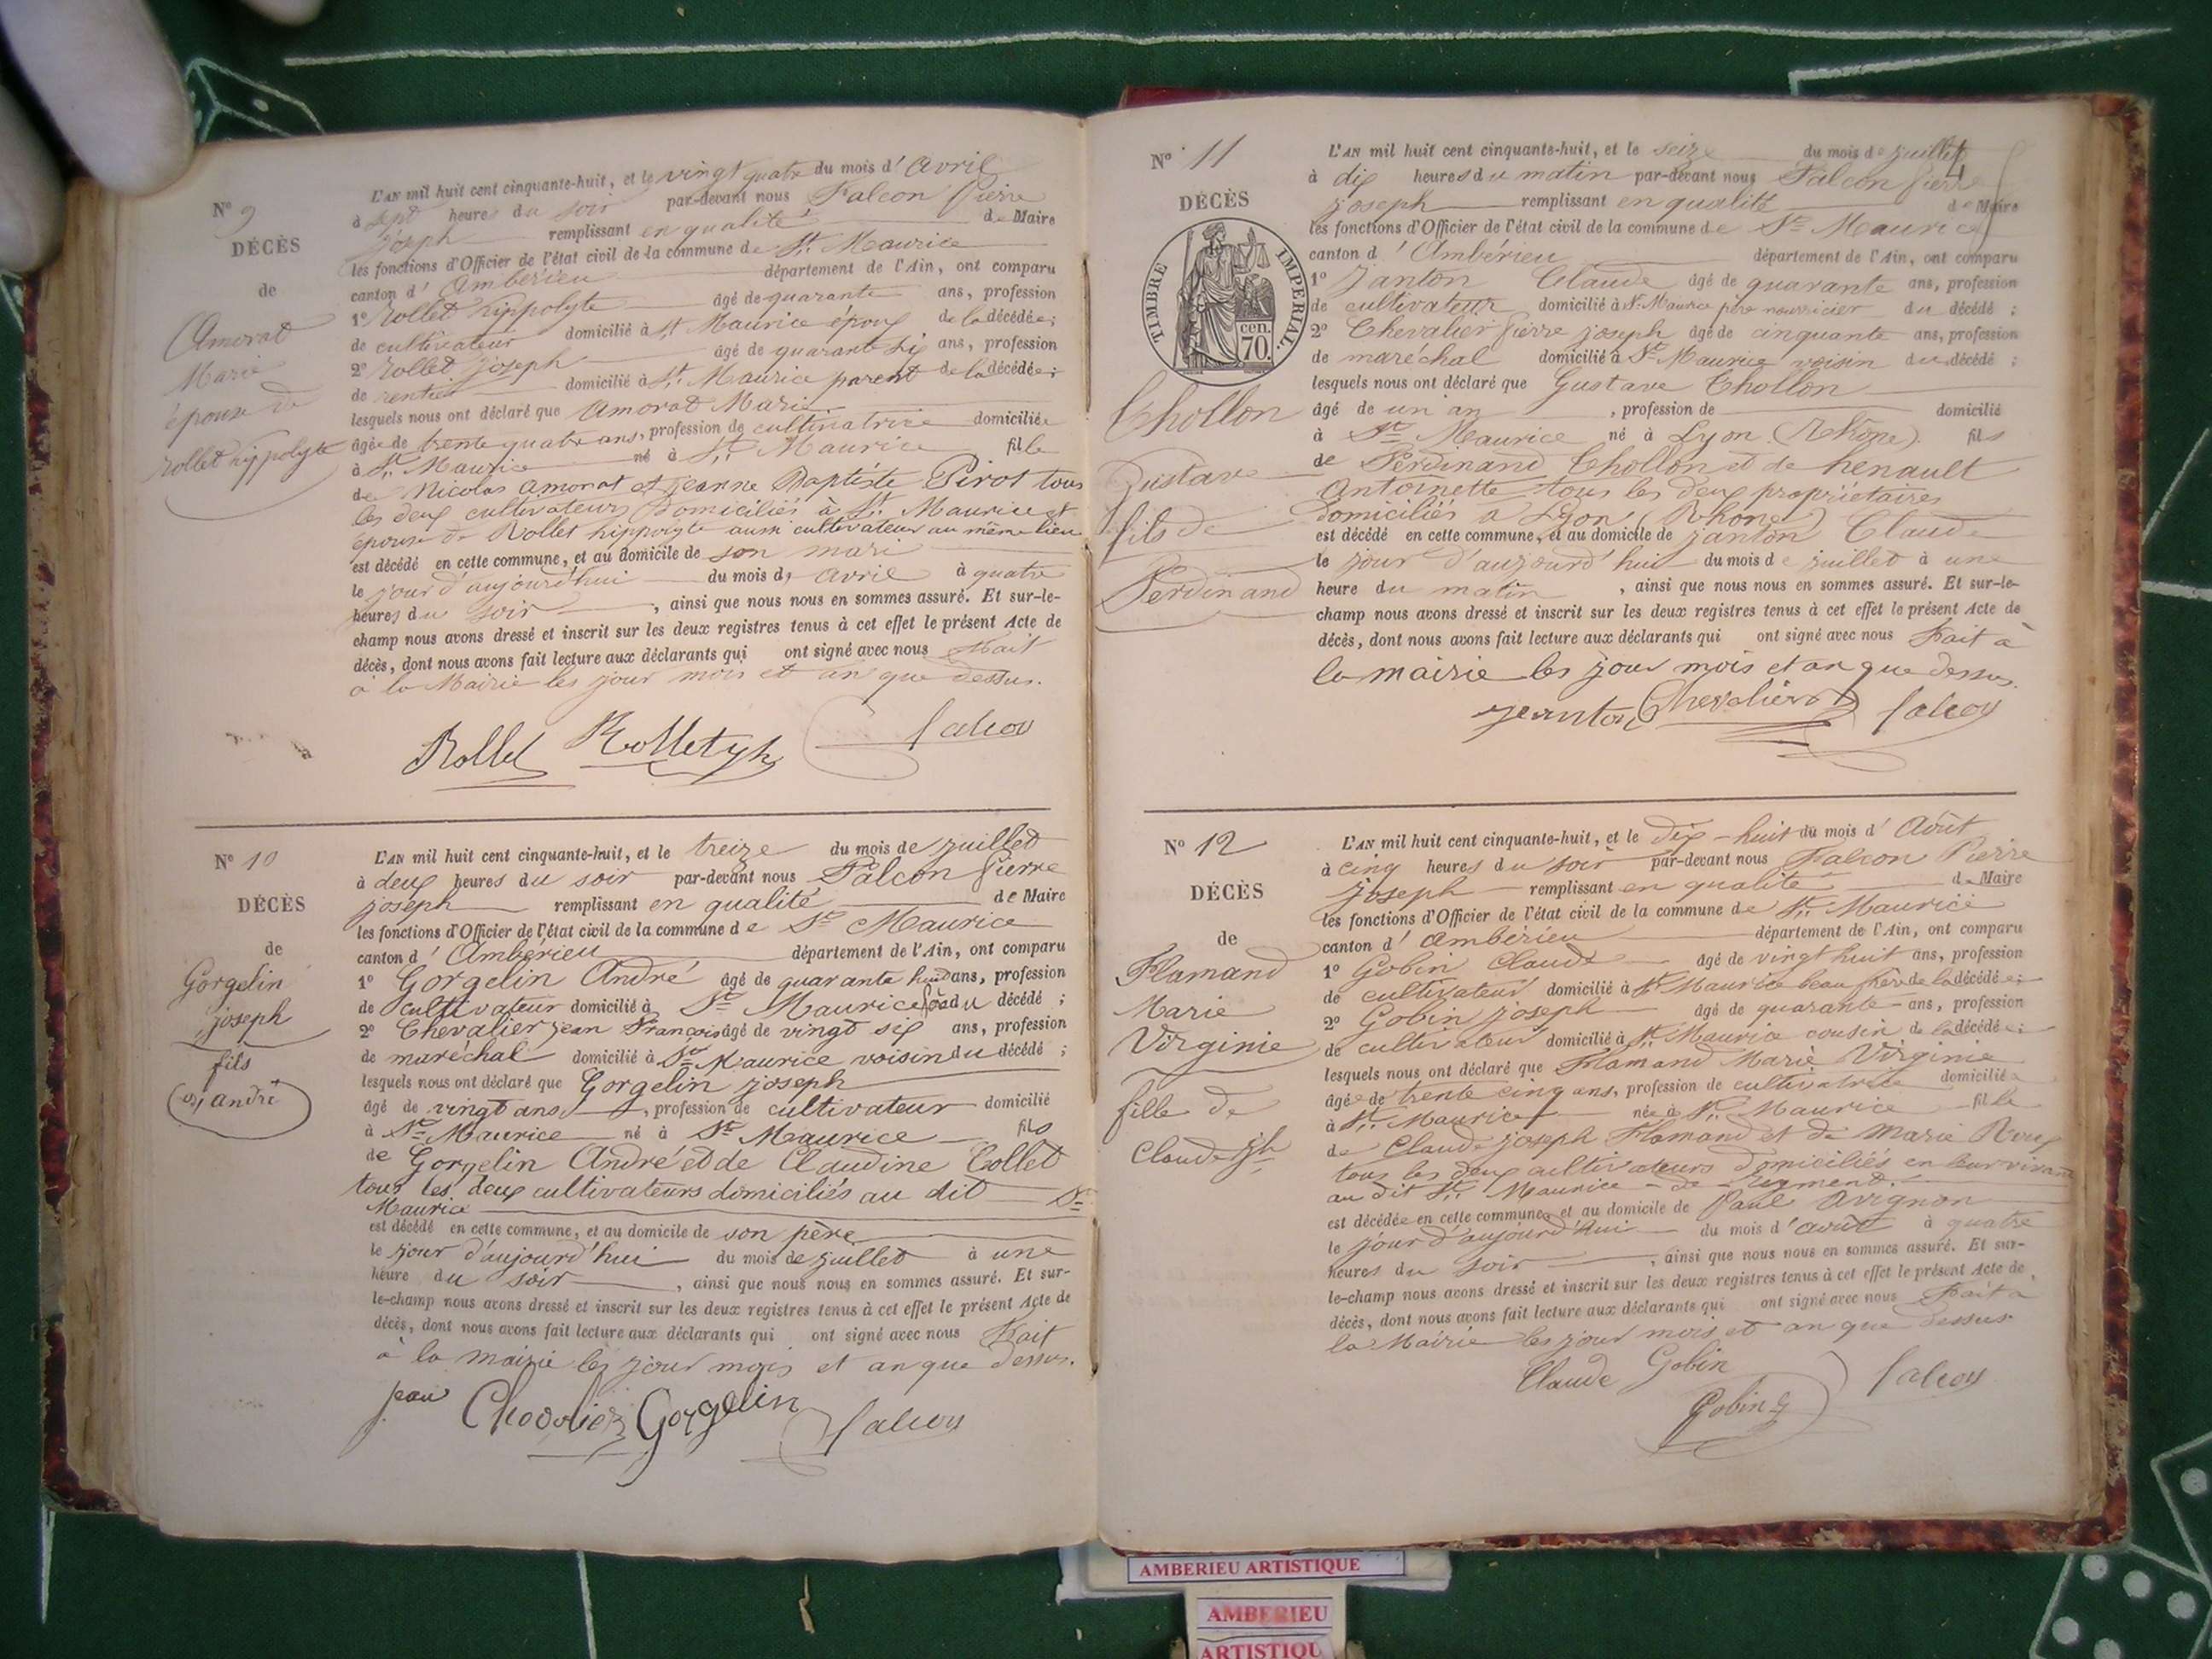 N° 9
DÉCÈS
de
Amorat
Marie
épouse de
Rollet hippolyte
L'AN mil huit cent cinquante-huit, et le vingt quatre du mois d' Avril
à sept heures du soir par-devant nous Falcon Pierre
joseph remplissant en qualité de Maire
les fonctions d'Officier de l'état civil de la commune de St. Maurice
canton d' Ambérieu département de l'Ain, ont comparu
1° Rollet hippolyte âgé de quarante ans, profession
de cultivateur domicilié à St Maurice époux de la décédée;
2° Rollet joseph âgé de quarante six ans, profession
de rentier domicilié à St. Maurice parent de la décédée;
lesquels nous ont déclaré que Amorat Marie
âgée de trente quatre ans, profession de cultivatrice domiciliée
à St. Maurice né à St. Maurice fille
de Nicolas Amorat et jeanne Baptiste Pirot tous
les deux cultivateurs domiciliés à St. Maurice et
épouse de Rollet hippolyte aussi cultivateur au même lieu
est décédé en cette commune, et au domicile de son mari
le jour d'aujourd'hui du mois d' avril à quatre
heures du soir, ainsi que nous nous en sommes assuré. Et sur-le-
champ nous avons dressé et inscrit sur les deux registres tenus à cet effet le présent Acte de
décès, dont nous avons fait lecture aux déclarants qui ont signé avec nous Fait
à la Mairie les jour mois et an que dessus.
Rollet Rollet jh falcon
N° 10
DÉCÈS
de
Gorgelin
joseph
fils
André
L'AN mil huit cent cinquante-huit, et le treize du mois de juillet
à deux heures du soir par-devant nous Falcon Pierre
joseph remplissant en qualité de Maire
les fonctions d'Officier de l'état civil de la commune de St Maurice
canton d' Ambérieu département de l'Ain, ont comparu
1° Gorgelin André âgé de quarante huit ans, profession
de cultivateur domicilié à St Maurice père du décédé;
2° Chevalier jean François âgé de vingt six ans, profession
de maréchal domicilié à St Maurice voisin du décédé;
lesquels nous ont déclaré que Gorgelin joseph
âgé de vingt ans, profession de cultivateur domicilié
à St Maurice né à St Maurice fils
de Gorgelin André et de Claudine Collet
tous les deux cultivateurs domiciliés au dit St
Maurice
est décédé en cette commune, et au domicile de son père
le jour d'aujourd'hui du mois de juillet à une
heure du soir, ainsi que nous nous en sommes assuré. Et sur-
le-champ nous avons dressé et inscrit sur les deux registres tenus à cet effet le présent Acte de
décès, dont nous avons fait lecture aux déclarants qui ont signé avec nous Fait
à la mairie les jour mois et an que dessus.
jean Chevalier Gorgelin falcon
4
N° 11
DÉCÈS
TIMBRE IMPERIAL
cen.
70.
Chollon
Gustave
fils de
Ferdinand
L'AN mil huit cent cinquante-huit, et le seize du mois de juillet
à dix heures du matin par-devant nous Falcon Pierre
joseph remplissant en qualité de Maire
les fonctions d'Officier de l'état civil de la commune de St Maurice
canton d' Ambérieu département de l'Ain, ont comparu
1° Janton Claude âgé de quarante ans, profession
de cultivateur domicilié à St Maurice père nourricier du décédé;
2° Chevalier Pierre joseph âgé de cinquante ans, profession
de maréchal domicilié à St Maurice voisin du décédé;
lesquels nous ont déclaré que Gustave Chollon
âgé de un an, profession de domicilié
à St Maurice né à Lyon (Rhône) fils
de Ferdinand Chollon et de henault
Antoinette tous les deux propriétaires
domiciliés à Lyon (Rhone)
est décédé en cette commune, et au domicile de janton Claude
le jour d'aujourd'hui du mois de juillet à une
heure du matin, ainsi que nous nous en sommes assuré. Et sur-le-
champ nous avons dressé et inscrit sur les deux registres tenus à cet effet le présent Acte de
décès, dont nous avons fait lecture aux déclarants qui ont signé avec nous Fait à
la mairie les jour mois et an que dessus.
jeanton Chevalier falcon
N° 12
DÉCÈS
de
Flamand
Marie
Virginie
fille de
Claude jh
L'AN mil huit cent cinquante-huit, et le dix-huit du mois d' Août
à cinq heures du soir par-devant nous Falcon Pierre
joseph remplissant en qualité de Maire
les fonctions d'Officier de l'état civil de la commune de St. Maurice
canton d' Ambérieu département de l'Ain, ont comparu
1° Gobin Claude âgé de vingt huit ans, profession
de cultivateur domicilié à St Maurice beau frère de la décédée;
2° Gobin joseph âgé de quarante ans, profession
de cultivateur domicilié à St. Maurice cousin de la décédée;
lesquels nous ont déclaré que Flamand Marie Virginie
âgée de trente cinq ans, profession de cultivatrice domiciliée
à St. Maurice née à St. Maurice fille
de Claude joseph Flamand et de Marie Roux
tous les deux cultivateurs domiciliés en leur vivant
au dit St. Maurice de Rement.
est décédée en cette commune, et au domicile de Paul Avignon
le jour d'aujourd'hui du mois d' août à quatre
heures du soir, ainsi que nous nous en sommes assuré. Et sur-
le-champ nous avons dressé et inscrit sur les deux registres tenus à cet effet le présent Acte de
décès, dont nous avons fait lecture aux déclarants qui ont signé avec nous Fait à
la Mairie les jour mois et an que dessus.
Claude Gobin falcon
Gobin
AMBERIEU ARTISTIQUE
AMBERIEU
ARTISTIQU